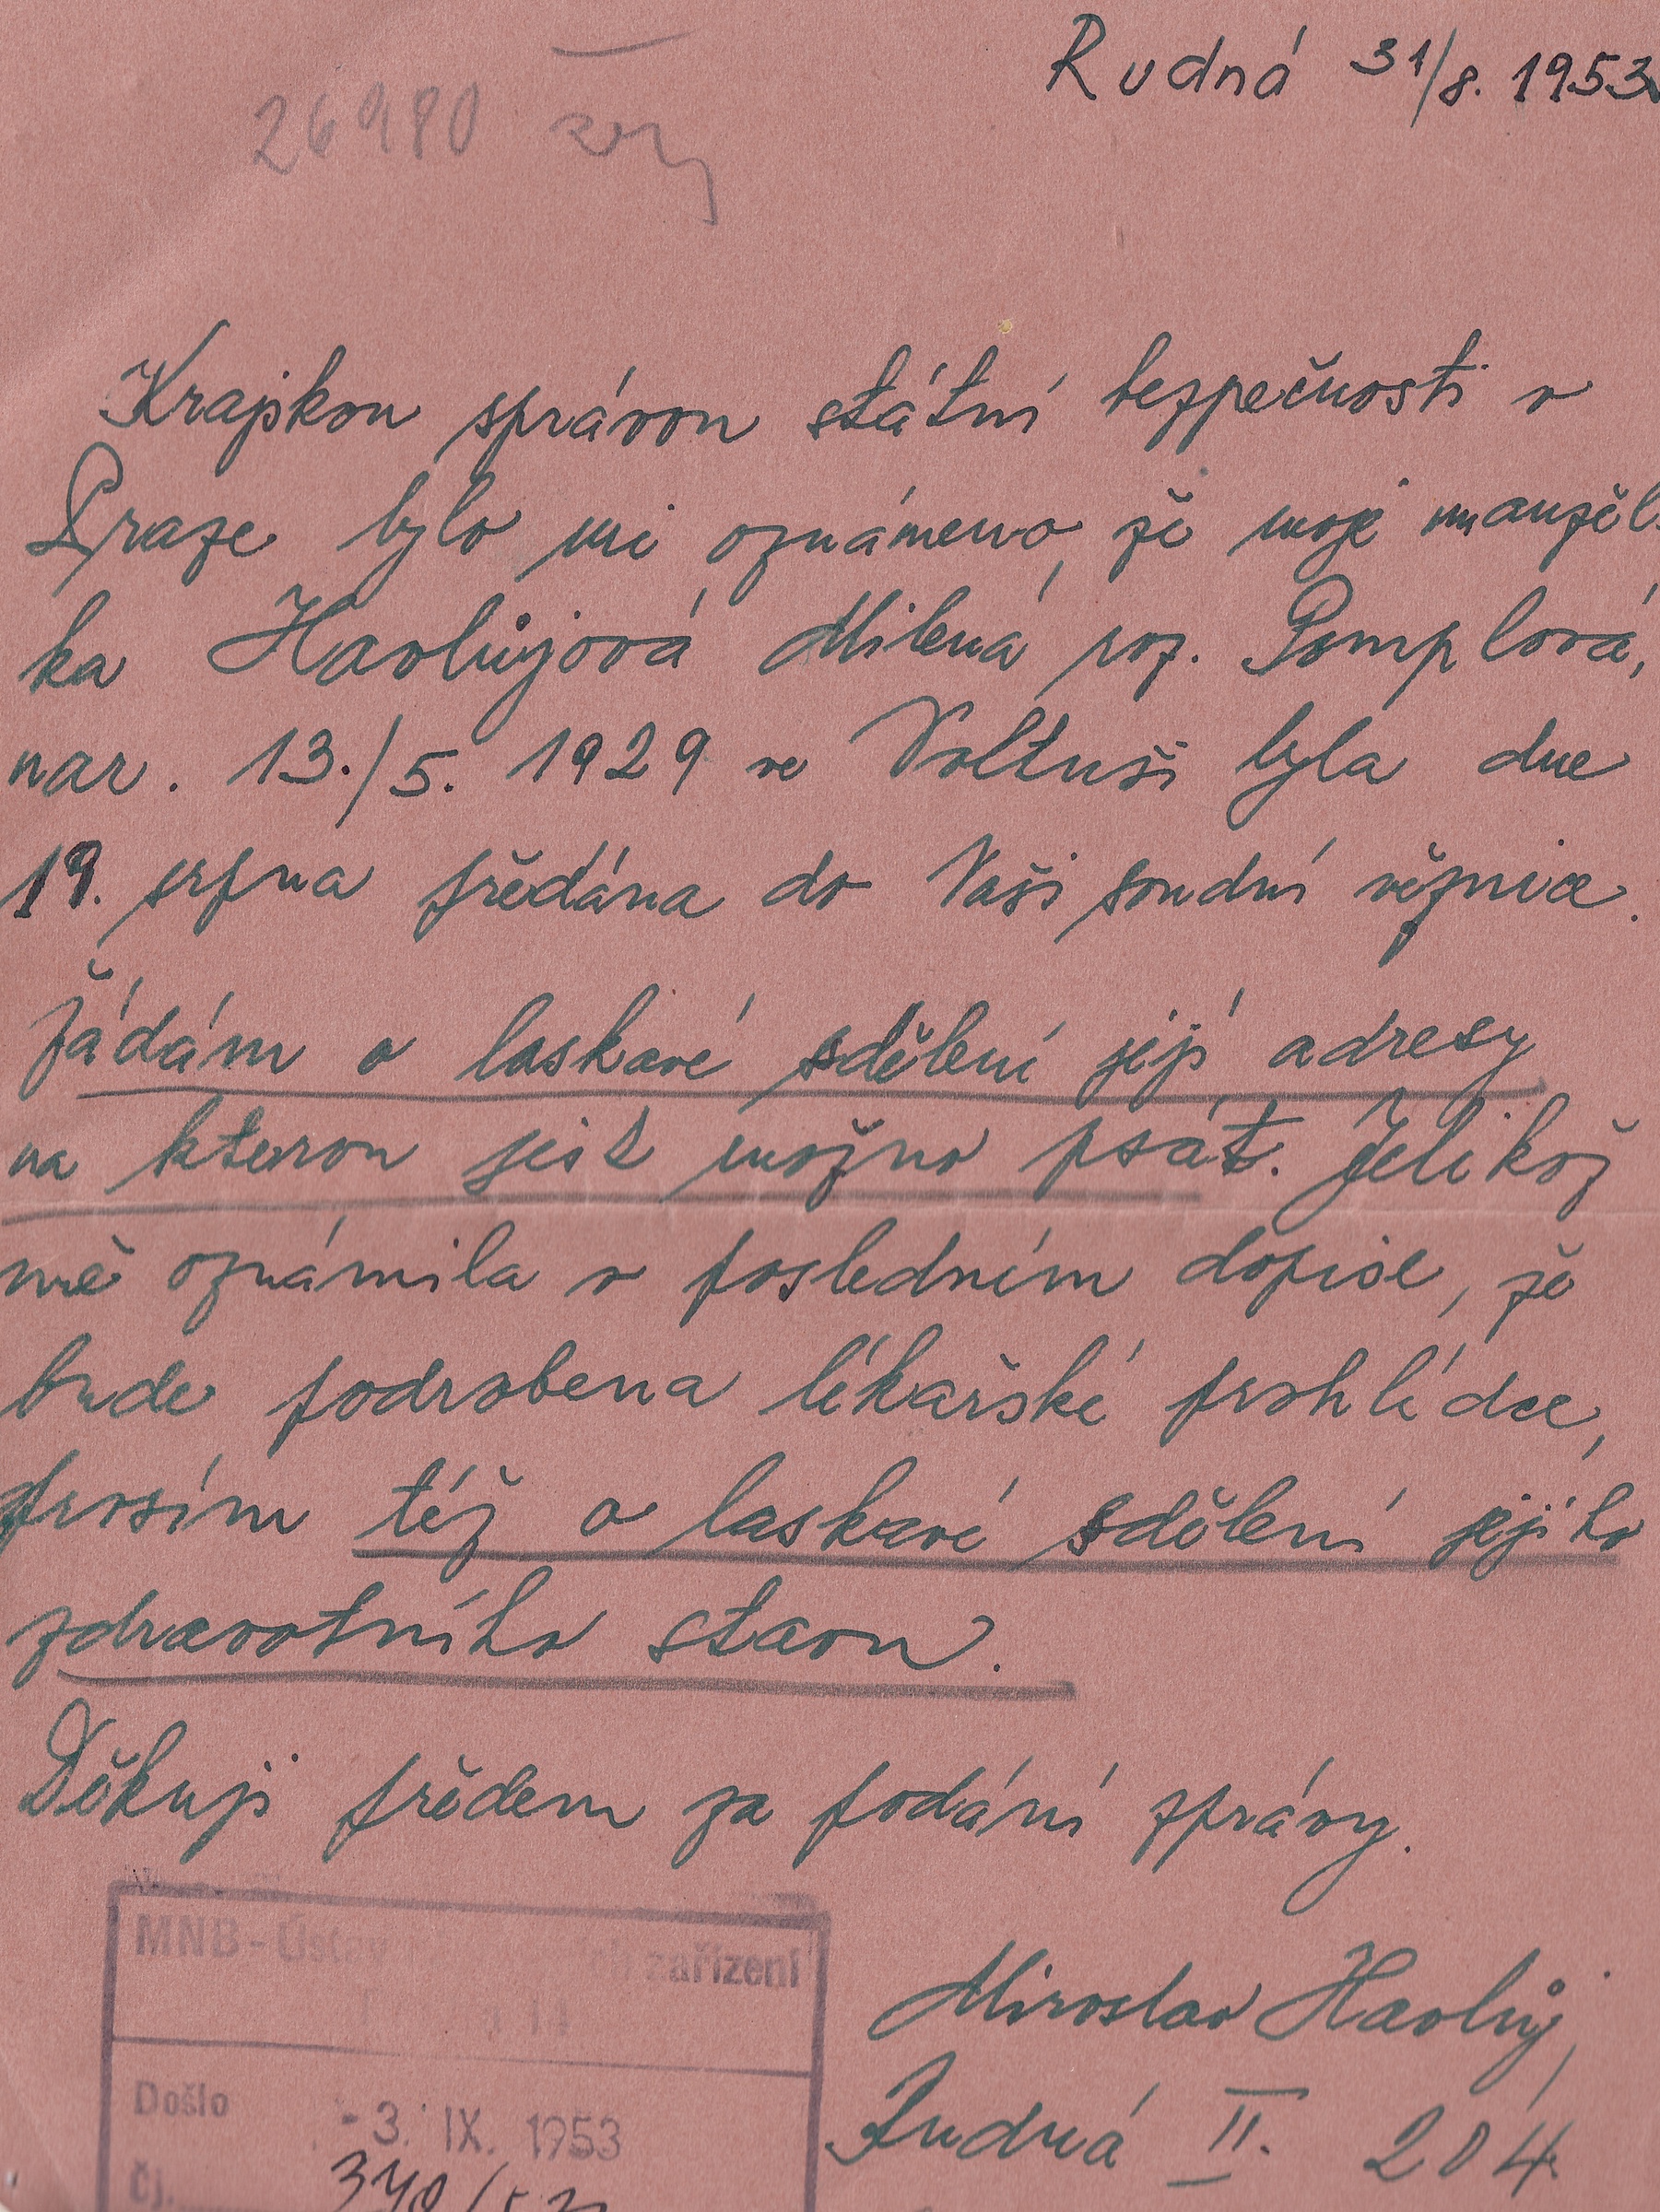 Rudná 31/8. 1953
26980
Krajskou správou státní bezpečnosti v
Praze bylo mi oznámeno, že moje manžel-
ka Havlůjová Milena roz. Pomplová,
nar. 13./5. 1929 ve Voltuši byla dne
19. srpna předána do Vaší soudní věznice.
Žádám o laskavé sdělení její adresy
na kterou jest možno psát. Jelikož
mě oznámila v posledním dopise, že
bude podrobena lékařské prohlídce,
prosím též o laskavé sdělení jejího
zdravotního stavu.
Děkuji předem za podání zprávy.
MNB - Ústav zařízení
Miroslav Havlůj,
Došlo - 3. IX. 1953
Rudná II. 204
Čj. 340/53